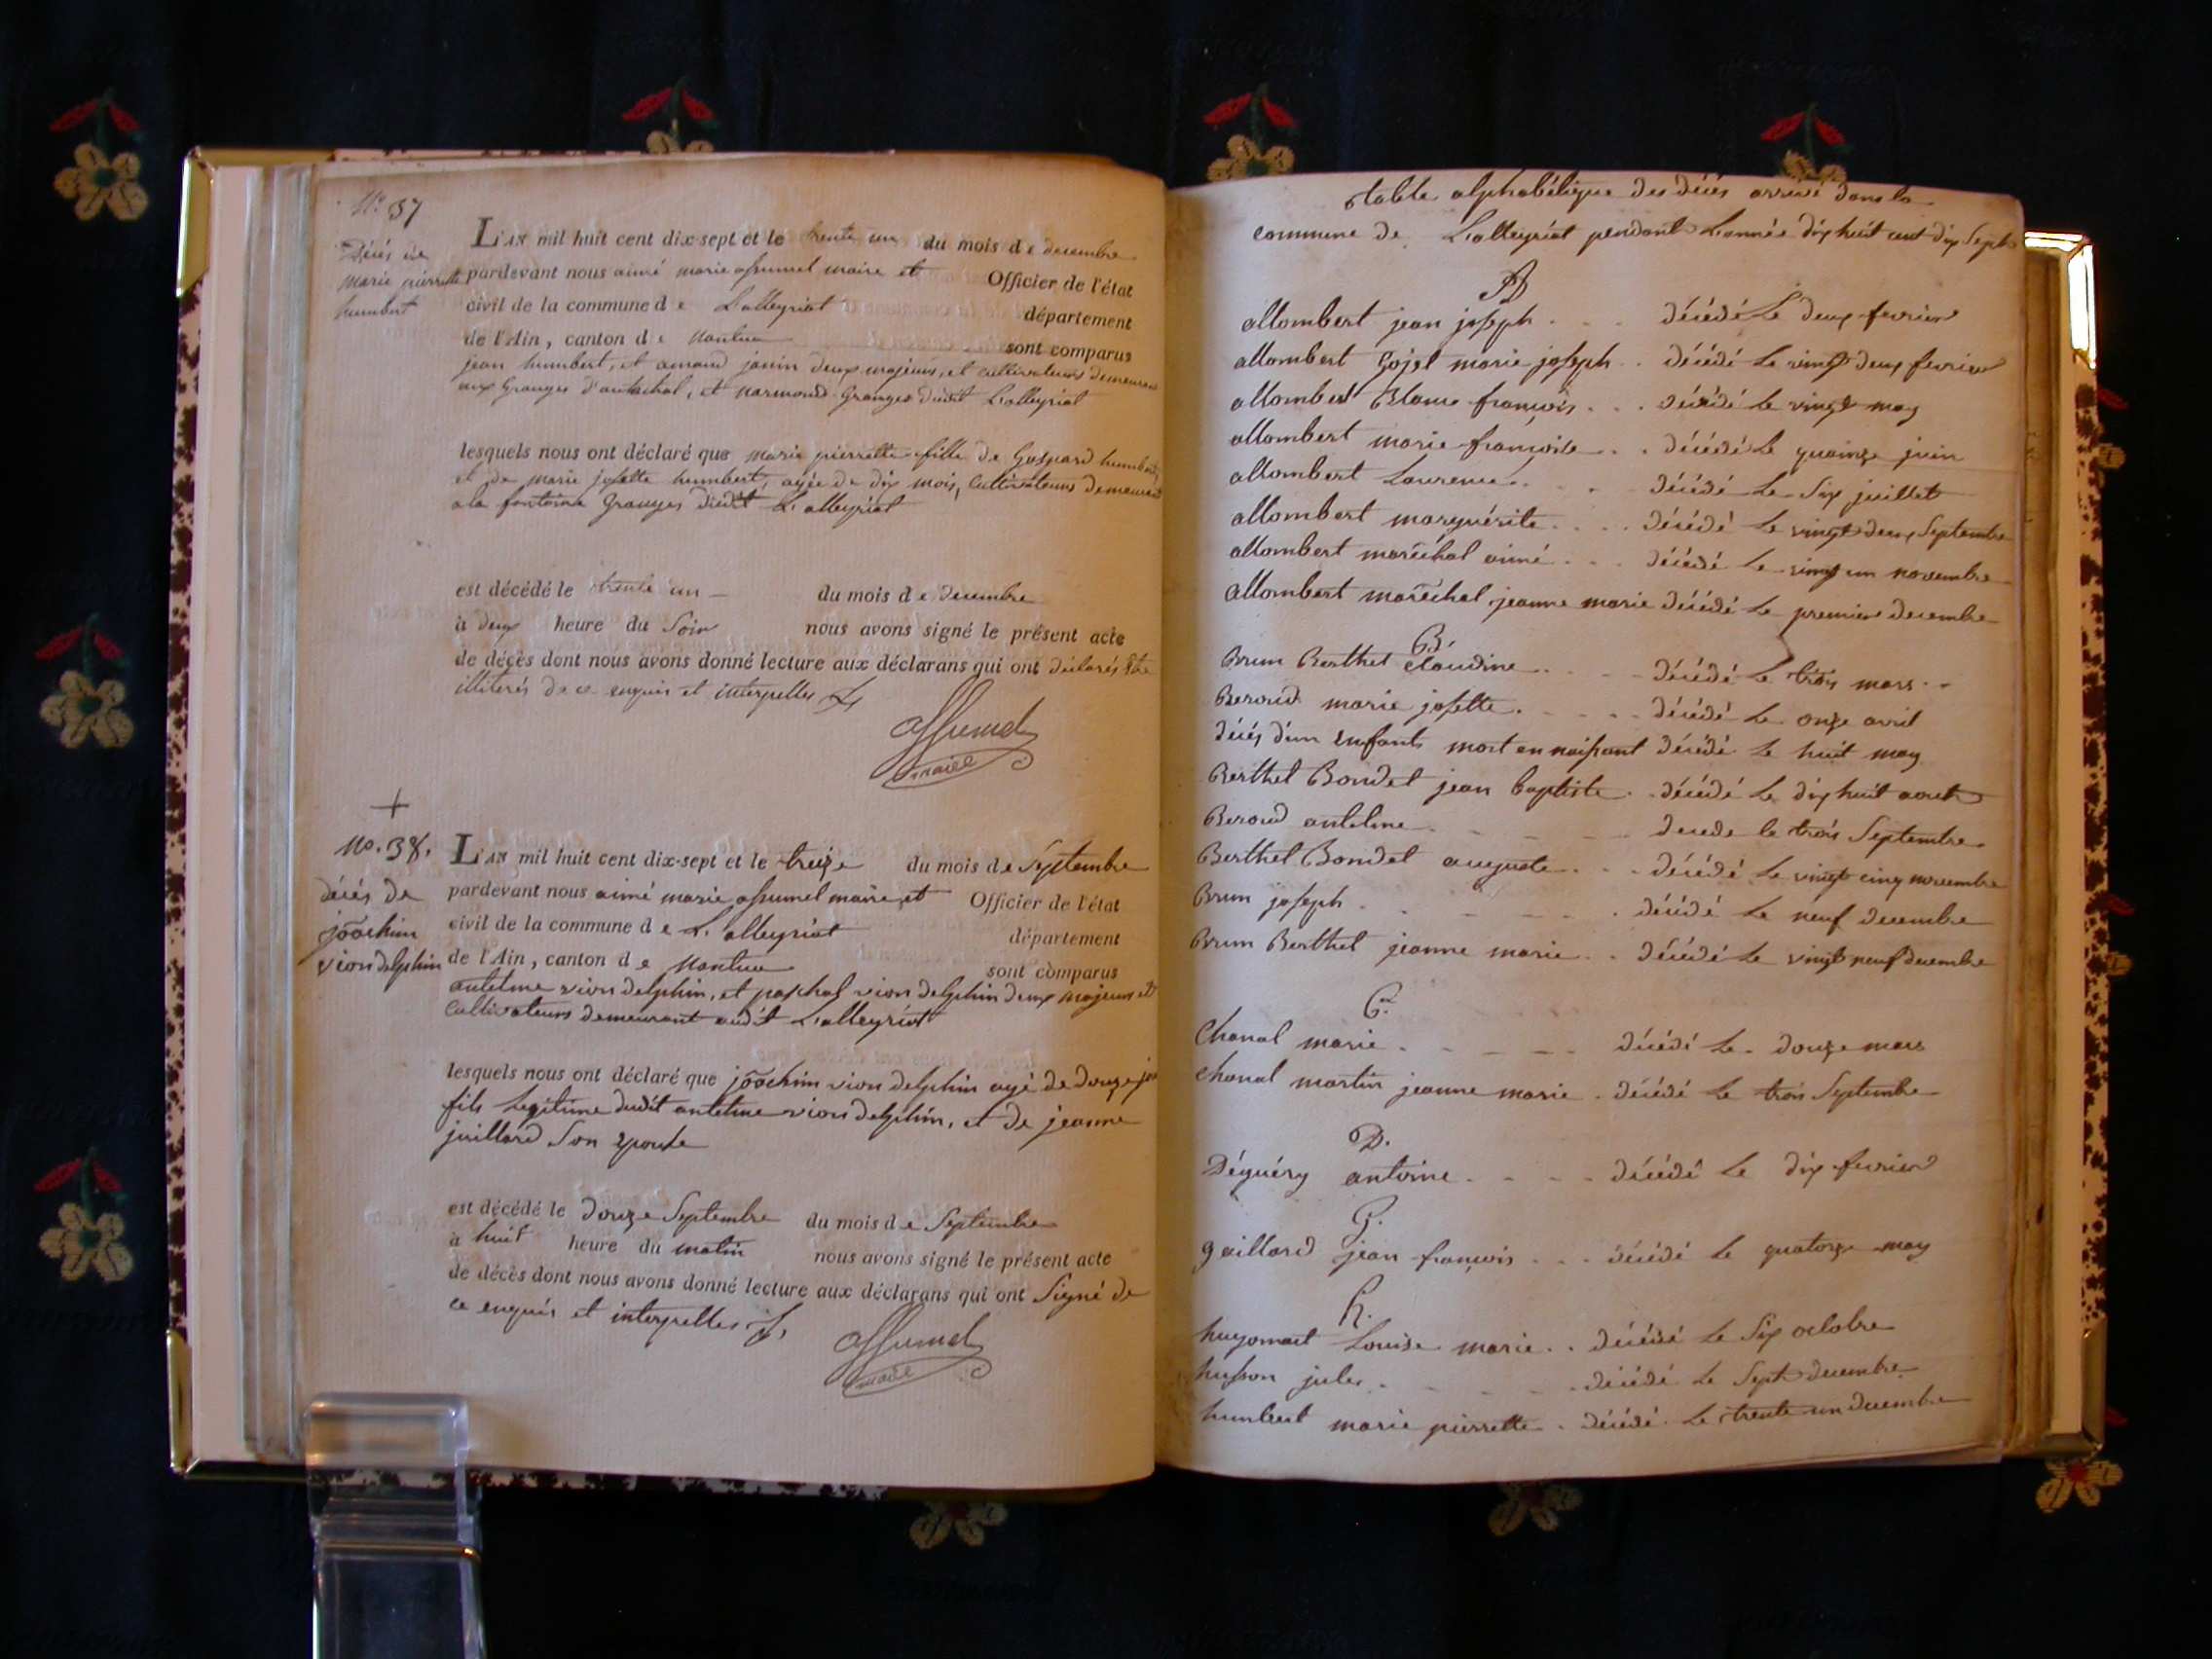 N.º 37
Décés de
marie pierrette
humbert
L'AN mil huit cent dix-sept et le trente un du mois de decembre
pardevant nous aimé marie assumel maire et Officier de l'état
civil de la commune de Lalleyriat département
de l'Ain, canton de Nantua sont comparus
jean humbert, et amand janin deux majeurs, et cultivateurs demeurant
aux Granges d'autachal, et narmond Granges dudit Lalleyriat
lesquels nous ont déclaré que marie pierrette fille de Gaspard humbert,
et de marie josette humbert, agée de dix mois, cultivateurs demeurant
a la fontaine Granges dudit L'alleyriat
est décédé le trente un du mois de decembre
à deux heure du Soir nous avons signé le présent acte
de décès dont nous avons donné lecture aux déclarans qui ont déclarés être
illiterés de ce enquis et interpellés
assumel
maire
+
No. 38.
décés de
joachim
vion delphin
L'AN mil huit cent dix-sept et le treize du mois de Septembre
pardevant nous aimé marie assumel maire et Officier de l'état
civil de la commune de L'alleyriat département
de l'Ain, canton de Nantua sont comparus
antelme vion delphin, et paschal vion delphin deux majeurs et
cultivateurs demeurant audit L'alleyriat
lesquels nous ont déclaré que joachim vion delphin agé de douze
fils legitime dudit antelme vion delphin, et de jeanne
juillard Son epouse
est décédé le douze Septembre du mois de Septembre
à huit heure du matin nous avons signé le présent acte
de décès dont nous avons donné lecture aux déclarans qui ont Signé de
ce enquis et interpellés
assumel
maire
table alphabétique des décés arrivé dans la
commune de Lalleyriat pendant L'année dix huit cent dix Sept
A
allombert jean joseph . . . décédé Le deux fevrier
allombert Gojet marie joseph . . décédé Le vingt deux fevrier
allombert Blanc françois . . . décédé Le vingt may
allombert marie françoise . . décédé Le quainze juin
allombert Laurence . . . décédé Le Six juillet
allombert marguérite . . . . décédé Le vingt deux Septembre
allombert maréchal aimé . . . décédé Le vingt un novembre
allombert maréchal jeanne marie décédé Le premier decembre
B.
Brun Berthet Claudine . . . . décédé Le trois mars . .
Beroud marie josette . . . . décédé Le onze avril
décés d'un Enfants mort en naissant décédé Le huit may
Berthet Bondet jean baptiste . . décédé Le dix huit aout
Beroud antelme . . . . decede le trois Septembre
Berthet Bondet auguste . . . décédé Le vingt cinq novembre
Brun joseph . . . . . . décédé Le neuf decembre
Brun Berthet jeanne marie . . décédé Le vingt neuf decembre
C.
Chanal marie . . . . . décédé Le douze mars
chanal martin jeanne marie . décédé Le trois Septembre
D.
Déguéry antoine . . . . décédé Le dix fevrier
G.
gaillard jean françois . . . décédé Le quatorze may
h.
hugonnet Louise marie . . décédé Le Six octobre
husson jules . . . . . décédé Le Sept decembre
humbert marie pierrette . décédé Le trente un decembre